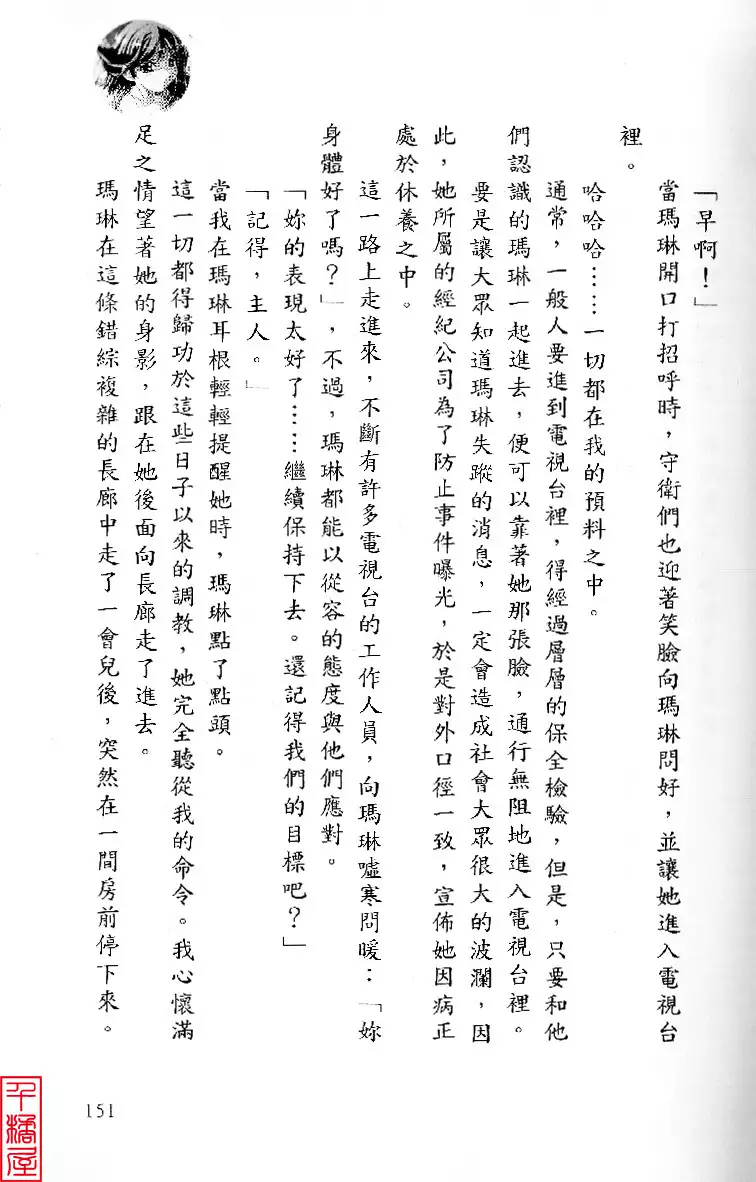 「早啊！」
當瑪琳開口打招呼時，守衛們也迎著笑臉向瑪琳問好，並讓她進入電視台
裡。
哈哈哈……一切都在我的預料之中。
通常，一般人要進到電視台裡，得經過層層的保全檢驗，但是，只要和他
們認識的瑪琳一起進去，便可以靠著她那張臉，通行無阻地進入電視台裡。
要是讓大眾知道瑪琳失蹤的消息，一定會造成社會大眾很大的波瀾，因
此，她所屬的經紀公司為了防止事件曝光，於是對外口徑一致，宣佈她因病正
處於休養之中。
這一路上走進來，不斷有許多電視台的工作人員，向瑪琳噓寒問暖：「妳
身體好了嗎？」，不過，瑪琳都能以從容的態度與他們應對。
「妳的表現太好了……繼續保持下去。還記得我們的目標吧？」
「記得，主人。」
當我在瑪琳耳根輕輕提醒她時，瑪琳點了點頭。
這一切都得歸功於這些日子以來的調教，她完全聽從我的命令。我心懷滿
足之情望著她的身影，跟在她後面向長廊走了進去。
瑪琳在這條錯綜複雜的長廊中走了一會兒後，突然在一間房前停下來。
151
千橘屋